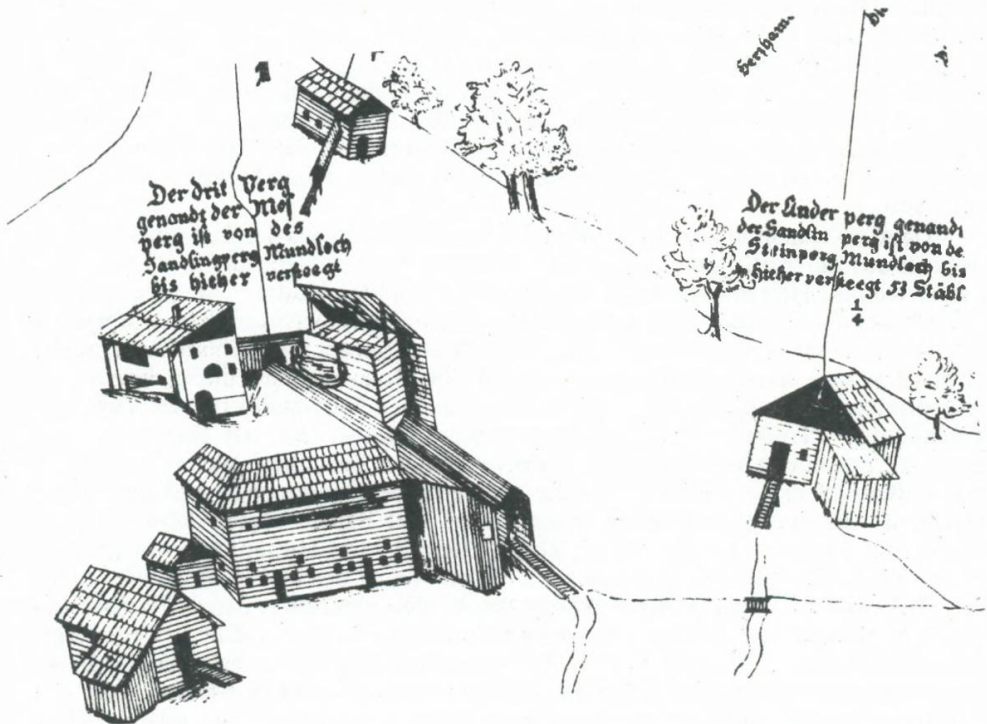 hersham
Der drit Perg
genandt der Mos
perg ist von des
Sandlingperg Mundloch
bis hieher versteegt
Der Ander perg genandt
der Sandlin perg ist von de
Steinperg Mundloch bis
hieher versteegt 53 Stäbl
1
4